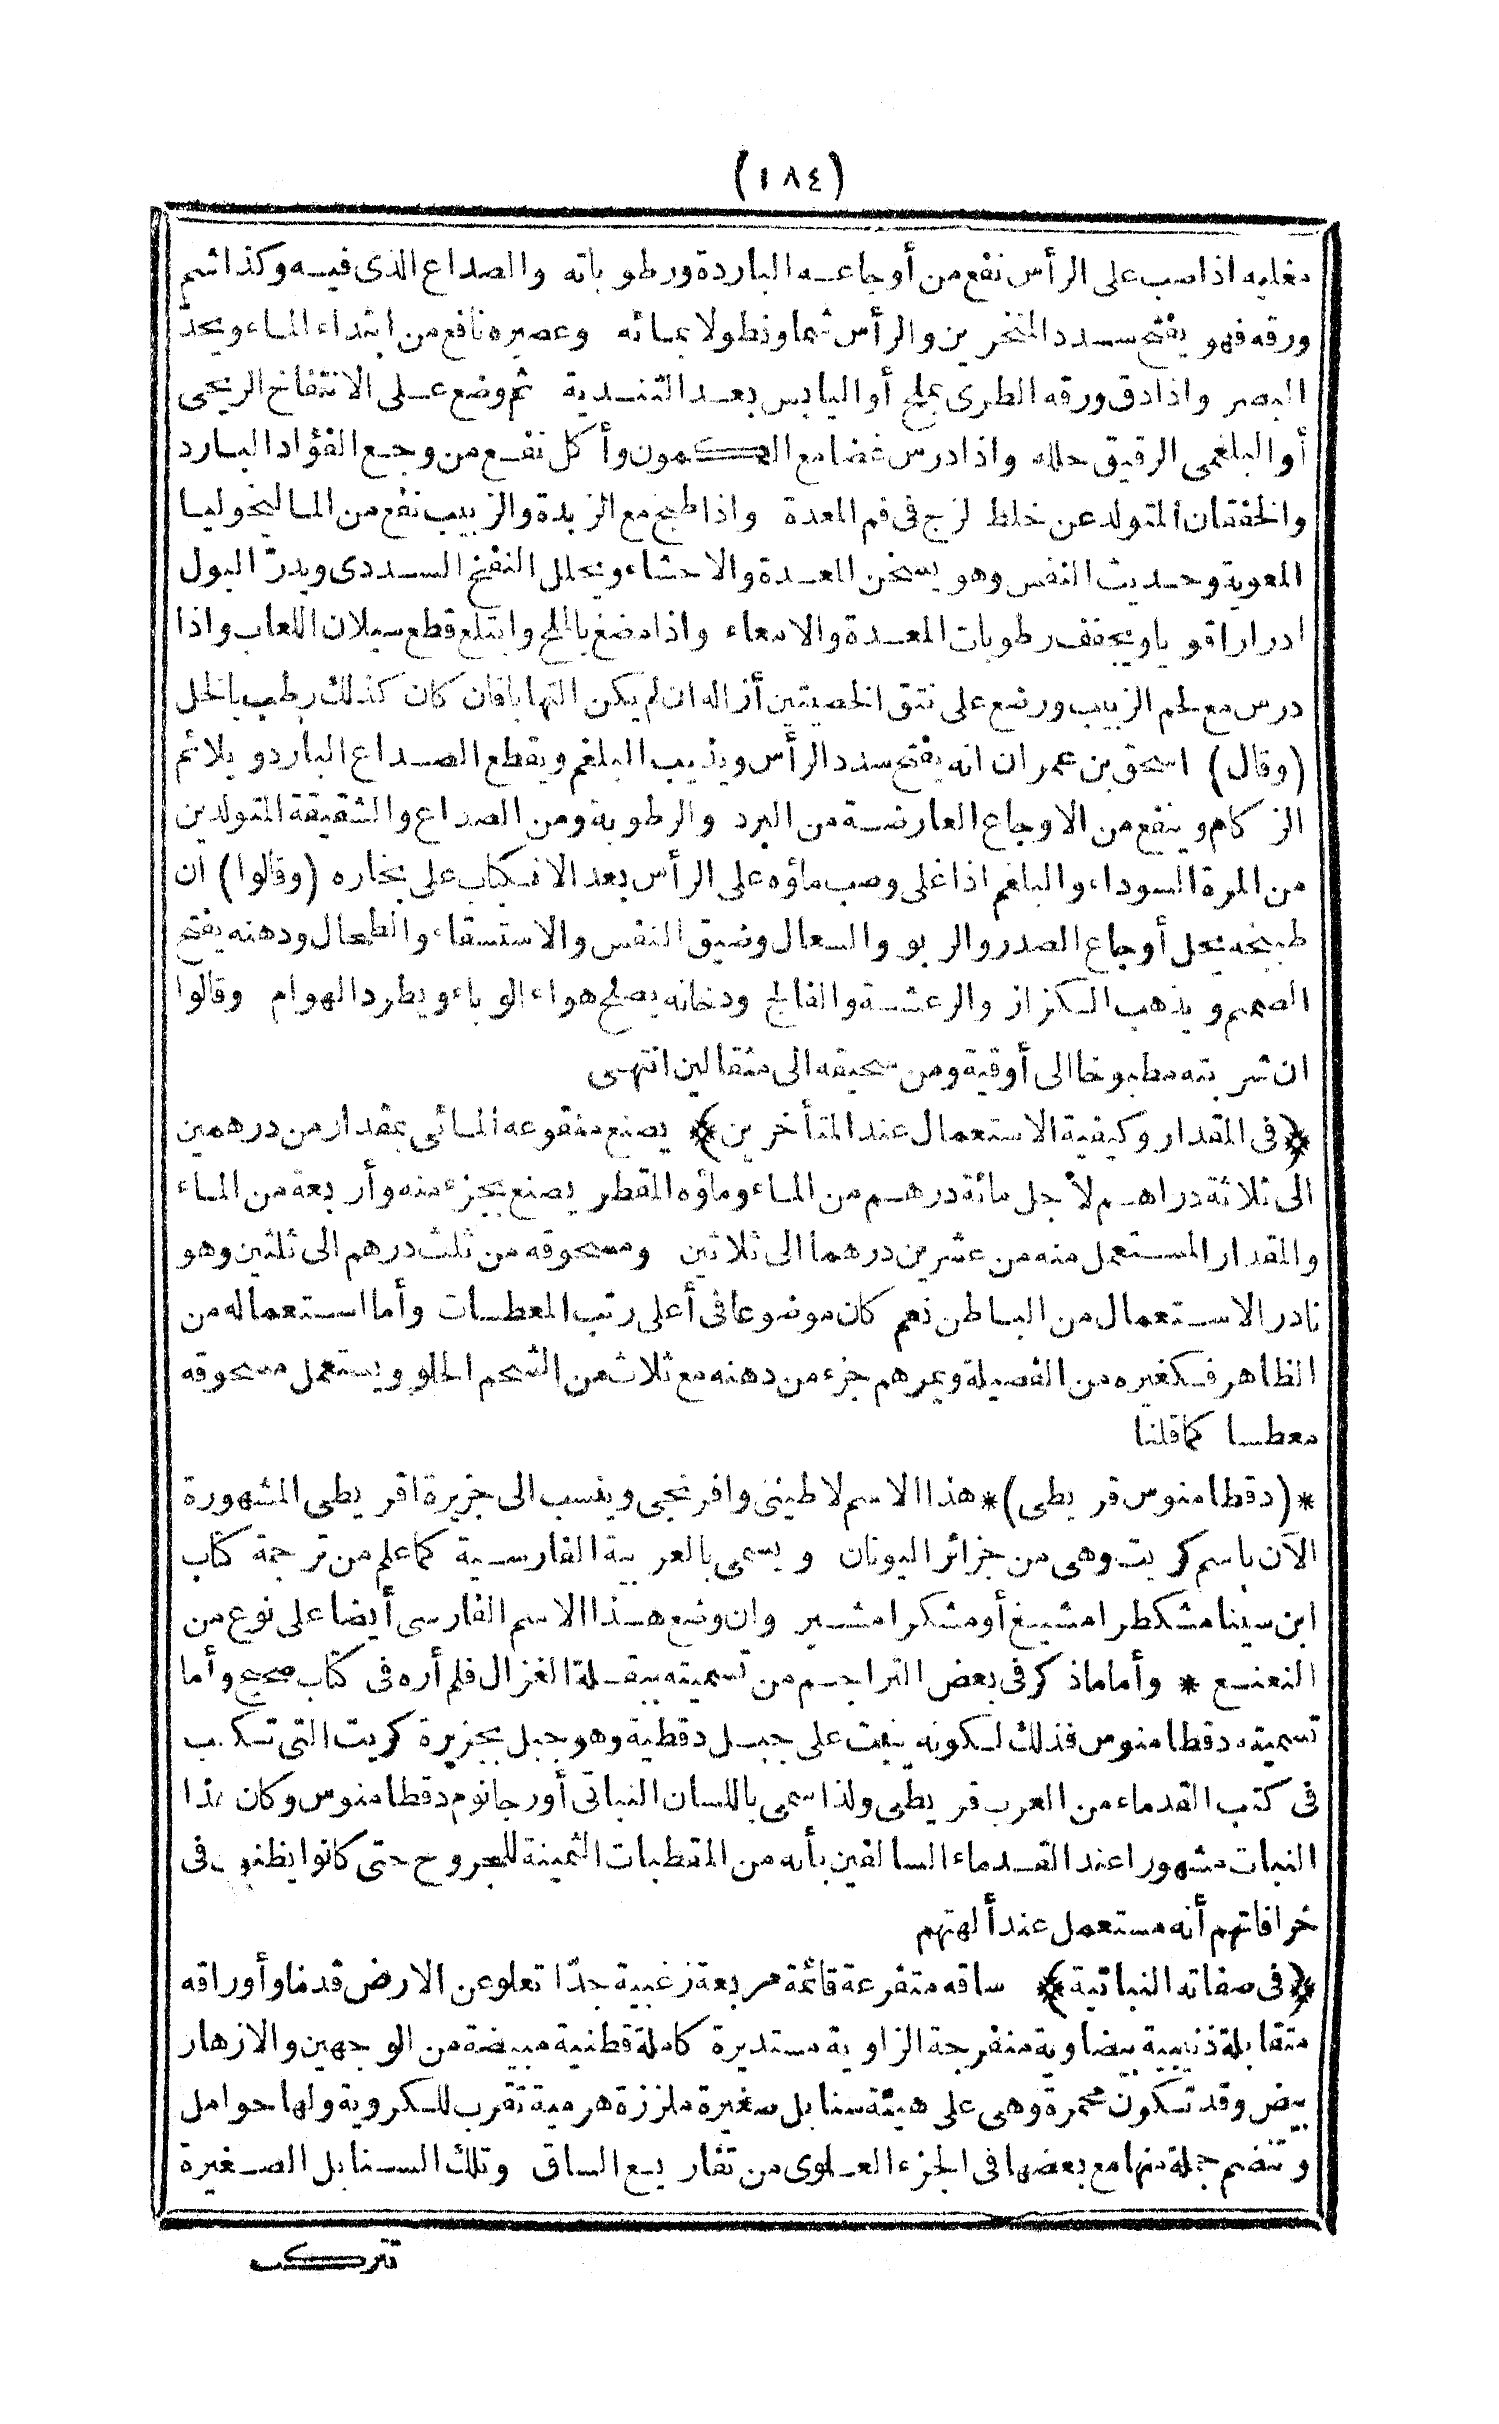 (١٨٤)
مغليه اذا صب على الرأس نفع من أوجاعه الباردة ورطوباته والصداع الذى فيه وكذا شم
ورقه فهو يفتح سدد المنخرين والرأس شما ونطولا بمائه وعصيره نافع من ابتداء الماء ويحدّ
البصر واذا دق ورقه الطرى بملح أو اليابس بعد التندية ثم وضع على الانتفاخ الريحى
أو البلغمى الرقيق حلله واذا درس غضا مع الكمون وأكل نفع من وجع الفؤاد البارد
والخفقان المتولد عن خلط لزج فى فم المعدة واذا طبخ مع الزبدة والزبيب نفع من الماليخوليا
المعوية وحديث النفس وهو يسخن المعدة والاحشاء ويحلل النفخ السددى ويدرّ البول
ادرارا قويا ويجفف رطوبات المعدة والامعاء واذا مضغ بالملح وابتلع قطع سيلان اللعاب واذا
درس مع لحم الزبيب ووضع على نتق الخصيتين أزاله ان لم يكن التهابا فان كان كذلك رطب بالخل
(وقال) اسحق بن عمران انه يفتح سدد الرأس ويذيب البلغم ويقطع الصداع البارد ويلائم
الزكام وينفع من الاوجاع العارضة من البرد والرطوبة ومن الصداع والشقيقة المتولدين
من المرة السوداء والبلغم اذا غلى وصب ماؤه على الرأس بعد الانكباب على بخاره (وقالوا) ان
طبيخه يحل أوجاع الصدر والربو والسعال وضيق النفس والاستسقاء والطحال ودهنه يفتح
الصمم ويذهب الكزاز والرعشة والفالج ودخانه يصلح هواء الوباء ويطرد الهوام وقالوا
ان شربته مطبوخا الى أوقية ومن سحيقه الى مثقالين انتهى
﴿فى المقدار وكيفية الاستعمال عند المتأخرين﴾ يصنع منقوعه المائى بمقدار من درهمين
الى ثلاثة دراهم لأجل مائة درهم من الماء وماؤه المقطر يصنع بجزء منه وأربعة من الماء
والمقدار المستعمل منه من عشرين درهما الى ثلاثين ومسحوقه من ثلث درهم الى ثلثين وهو
نادر الاستعمال من الباطن نعم كان موضوعا فى أعلى رتب المعطسات وأما استعماله من
الظاهر فكغيره من الفصيلة ويمرهم جزء من دهنه مع ثلاث من الشحم الحلو ويستعمل مسحوقه
معطسا كما قلنا
*(دقطامنوس قريطى)* هذا الاسم لاطينى وافرنجى وينسب الى جزيرة اقريطى المشهورة
الآن باسم كريت وهى من جزائر اليونان ويسمى بالعربية الفارسية كما علم من ترجمة كتاب
ابن سينا مشكطرامشيغ أو مشكرامشير وان وضع هذا الاسم الفارسى أيضا على نوع من
النعنع * وأما ما ذكر فى بعض التراجم من تسميته ببقلة الغزال فلم أره فى كتاب صحيح وأما
تسميته دقطامنوس فذلك لكونه ينبت على جبل دقطية وهو جبل بجزيرة كريت التى تكتب
فى كتب القدماء من العرب قريطى ولذا سمى باللسان النباتى أورجانوم دقطامنوس وكان هذا
النبات مشهورا عند القدماء السالفين بأنه من المقطبات الثمينة للجروح حتى كانوا يظنون فى
خرافاتهم أنه مستعمل عند ألهتهم
﴿فى صفاته النباتية﴾ ساقه متفرعة قائمة مربعة زغبية جدّا تعلو عن الارض قدما وأوراقه
متقابلة ذنيبية بيضاوية منفرجة الزاوية مستديرة كاملة قطنية مبيضة من الوجهين والازهار
بيض وقد تكون محمرة وهى على هيئة سنابل صغيرة ملززة هرمية تقرب للكروية ولها حوامل
وتنضم جملة منها مع بعضها فى الجزء العلوى من تفاريع الساق وتلك السنابل الصغيرة
تتركب